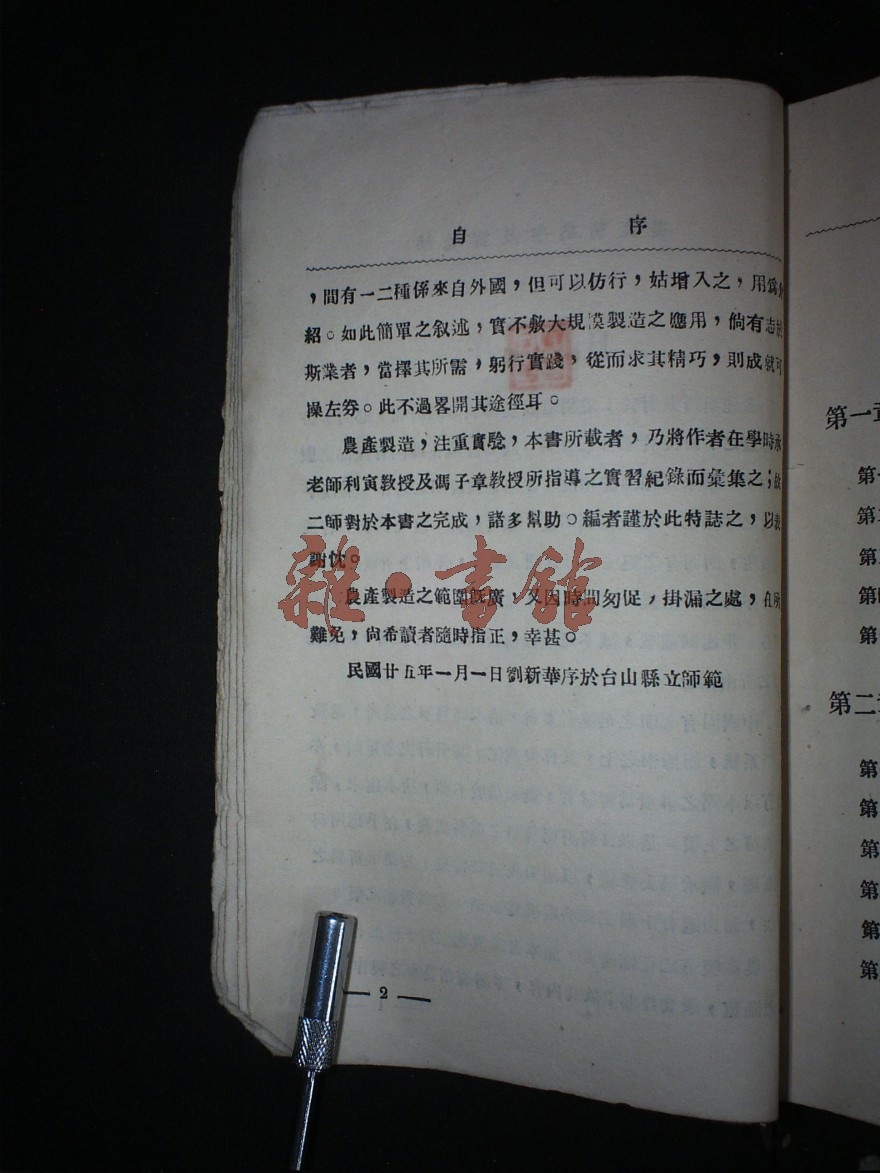 自 序
，間有一二種係來自外國，但可以仿行，姑增入之，用爲介
紹。如此簡單之叙述，實不敷大規模製造之應用，倘有志於
斯業者，當擇其所需，躬行實踐，從而求其精巧，則成就可
操左券。此不過畧開其途徑耳。
農產製造，注重實驗，本書所載者，乃將作者在學時承
老師利寅教授及馮子章教授所指導之實習紀錄而彙集之；故
二師對於本書之完成，諸多幫助。編者謹於此特誌之，以表
謝忱。
農產製造之範圍旣廣，又因時間匆促，掛漏之處，在所
難免，尙希讀者隨時指正，幸甚。
民國廿五年一月一日劉新華序於台山縣立師範
— 2 —
雜·書館
第一章
第二章
第
第
第
第
第
第